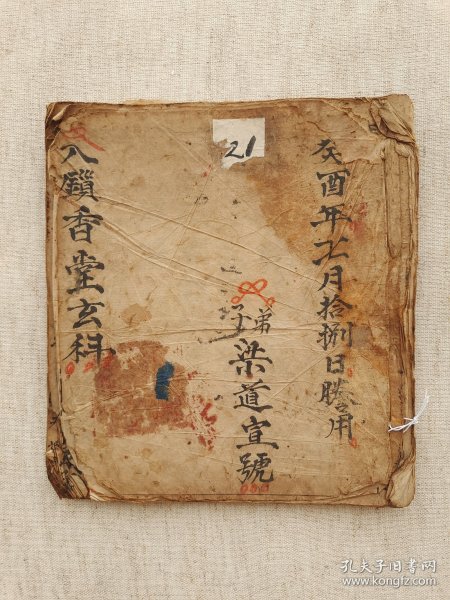 癸酉年七月拾捌日謄用
21
弟子梁道宣號
入鎖香堂玄科
孔夫子旧书网
www.kongfz.com